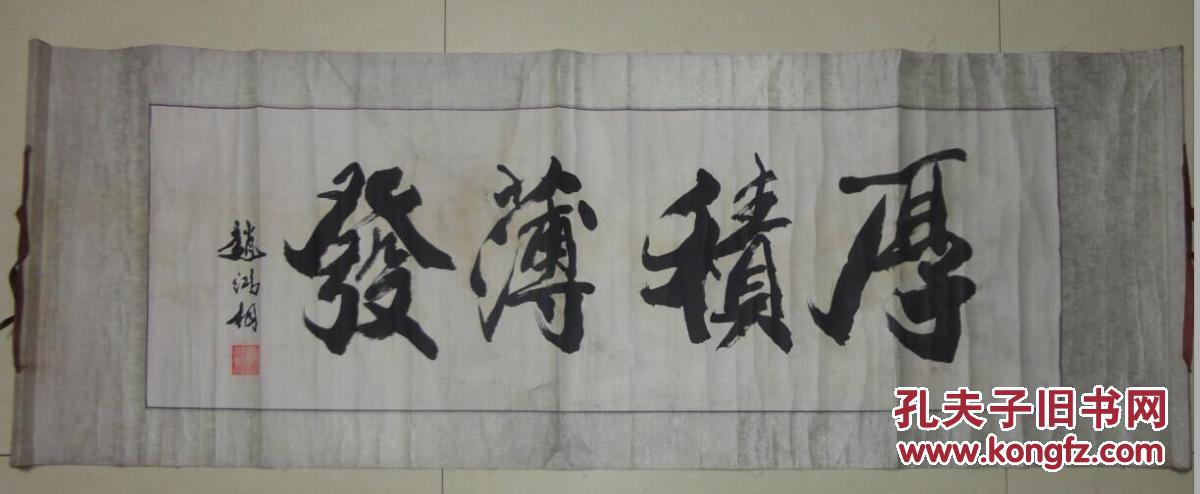 厚積薄發
趙鴻
孔夫子旧书网
www.kongfz.com